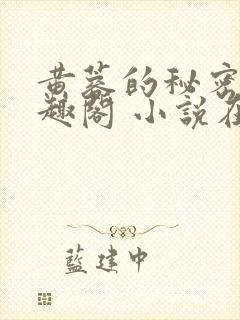 黄蓉的秘密
趣阁 小說在
藍建中